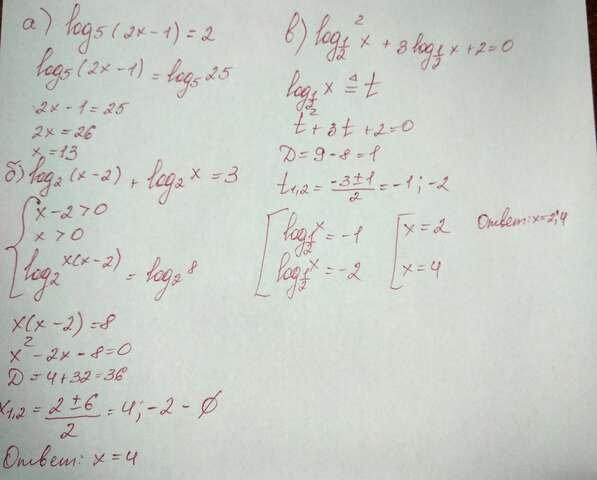 а) log₅(2x-1)=2
log₅(2x-1)=log₅25
2x-1=25
2x=26
x=13
б) log₂(x-2)+log₂x=3
x-2>0
x>0
log₂x(x-2)=log₂8
x(x-2)=8
x²-2x-8=0
D=4+32=36
x₁,₂=(2±6)/2=4;-2-∅
Ответ: x=4
в) log²_{1/2}x+3log_{1/2}x+2=0
log_{1/2}x≜t
t²+3t+2=0
D=9-8=1
t₁,₂=(-3±1)/2=-1;-2
log_{1/2}x=-1
log_{1/2}x=-2
x=2
x=4
Ответ: x=2;4